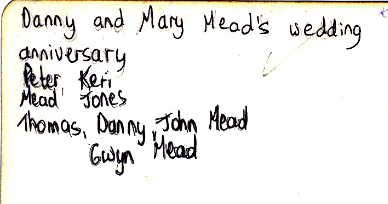 Danny and Mary Mead's wedding
anniversary
Peter, Keri
Mead Jones
Thomas, Danny, John Mead
Gwyn Mead